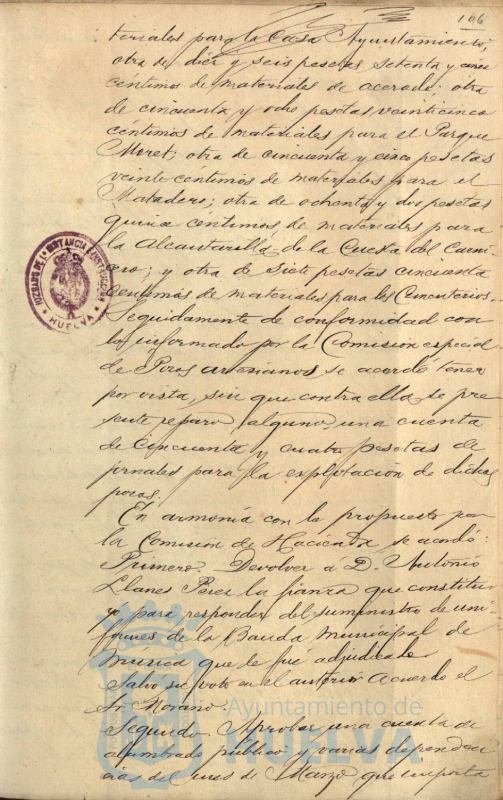 106
teriales para la Casa Ayuntamiento;
otra de diez y seis pesetas setenta y cinco
céntimos de materiales de acerado; otra
de cincuenta y ocho pesetas veinticinco
céntimos de materiales para el Parque
Moret; otra de cincuenta y cinco pesetas
veinte céntimos de materiales para el
Matadero; otra de ochenta y dos pesetas
quince céntimos de materiales para
la Alcantarilla de la Cuesta del Carni-
cero; y otra de siete pesetas cincuenta
céntimos de materiales para los Cementerios.
Seguidamente de conformidad con
lo informado por la Comisión especial
de Pozos artesianos se acordó tener
por vista, sin que contra ella se pre
sente reparo alguno, una cuenta
de cincuenta y cuatro pesetas de
jornales para la explotación de dichos
pozos.
En armonía con lo propuesto por
la Comisión de Hacienda se acordó:
Primero. Devolver a D. Antonio
Llanes Perez la fianza que constitu-
yó para responder del suministro de uni-
formes de la Banda Municipal de
Música que le fué adjudicado
Salvó su voto en el anterior acuerdo el
Sr. Morano.
Segundo. Aprobar una cuenta de
alumbrado público y varias dependen
cias del mes de Marzo que importa
JUZGADO DE 1ª INSTANCIA E INSTRUCCION
HUELVA
Ayuntamiento de
HUELVA